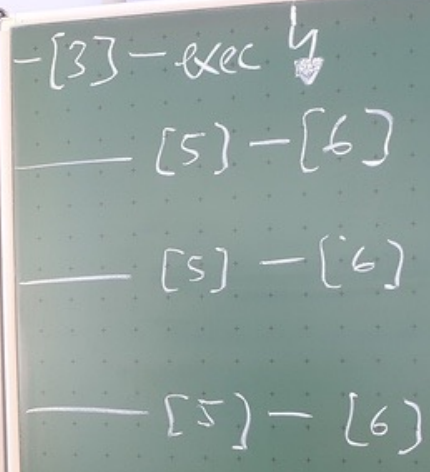 -[3]-exec
[5]-[6]
[5]-[6]
[5]-[6]